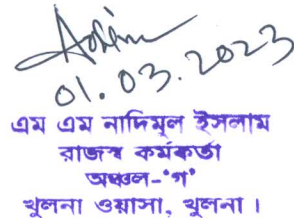 01.03.2023
এম এম নাদিমুল ইসলাম
রাজস্ব কর্মকর্তা
অঞ্চল-'গ'
খুলনা ওয়াসা, খুলনা।